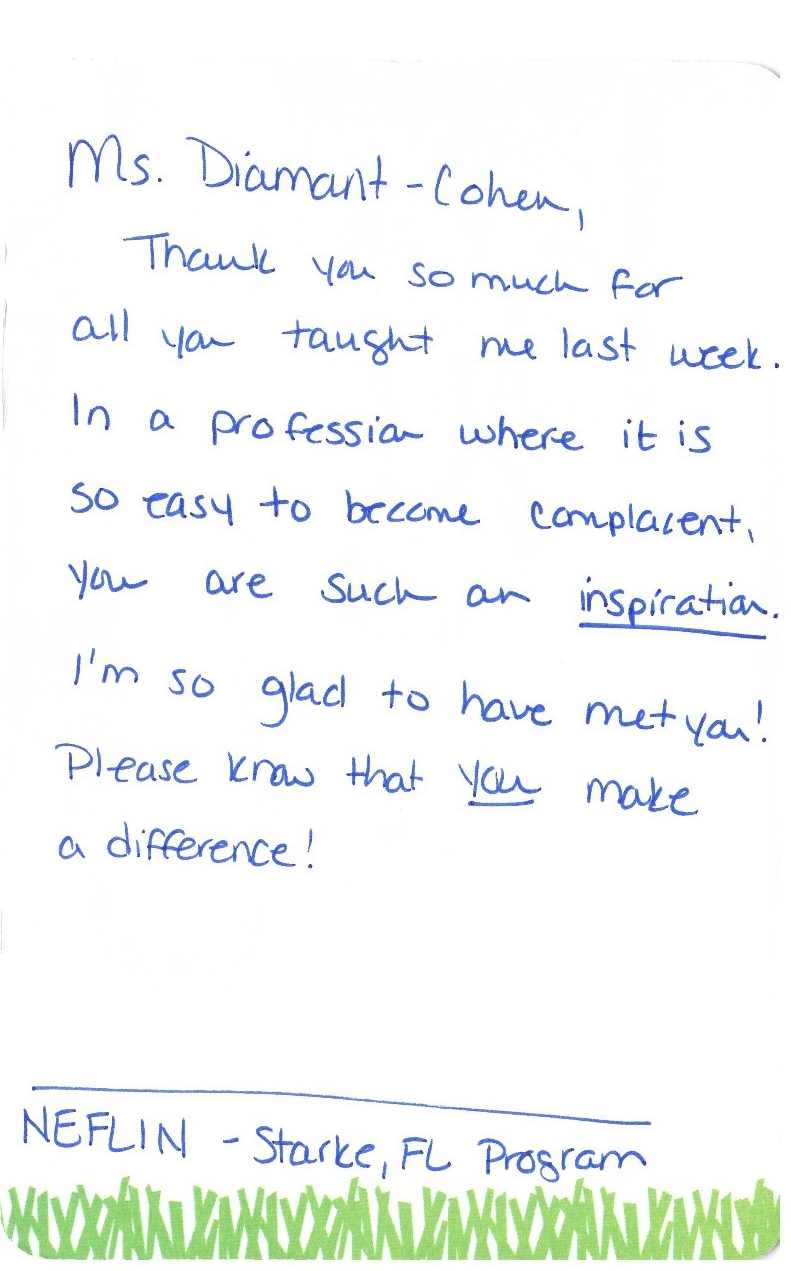 Ms. Diamant-Cohen,
Thank you so much for
all you taught me last week.
In a profession where it is
so easy to become complacent,
you are such an inspiration.
I'm so glad to have met you!
Please know that you make
a difference!
NEFLIN - Starke, FL Program